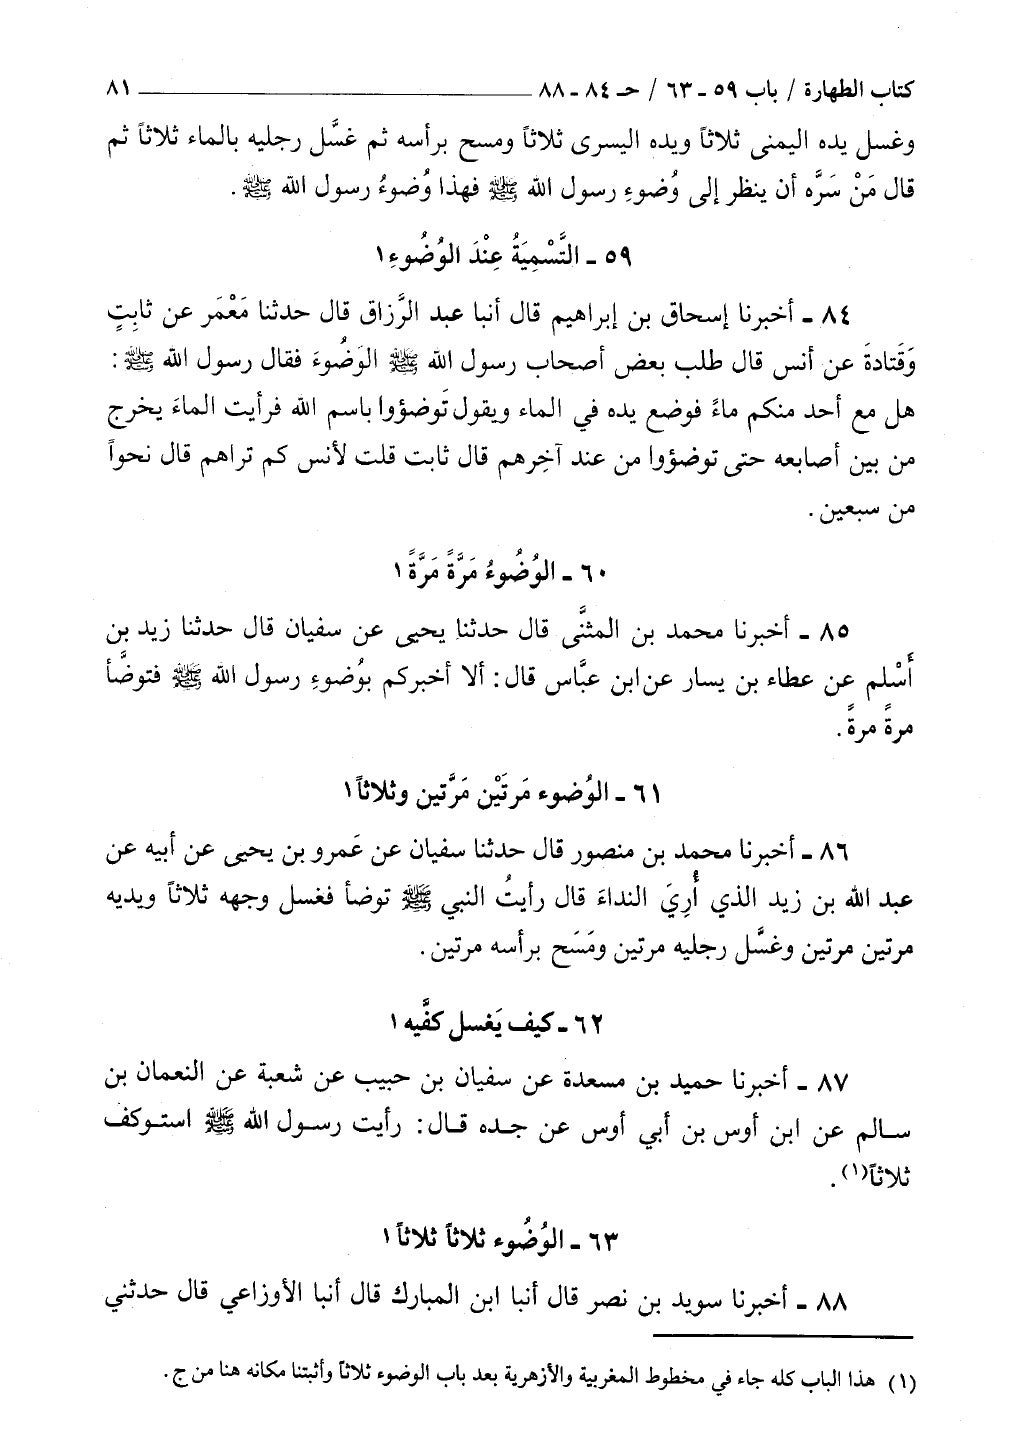 كتاب الطهارة / باب ٥٩ ـ ٦٣ / حـ ٨٤ ـ ٨٨ ٨١
وغسل يده اليمنى ثلاثاً ويده اليسرى ثلاثاً ومسح برأسه ثم غسَّل رجليه بالماء ثلاثاً ثم
قال مَنْ سَرَّه أن ينظر إلى وُضوءِ رسول الله ﷺ فهذا وُضوءُ رسول الله ﷺ .
٥٩ ـ التَّسْمِيَةُ عِنْدَ الوُضُوءِ ١
٨٤ ـ أخبرنا إسحاق بن إبراهيم قال أنبا عبد الرَّزاق قال حدثنا مَعْمَر عن ثابِتٍ
وَقَتادةَ عن أنس قال طلب بعض أصحاب رسول الله ﷺ الوَضُوءَ فقال رسول الله ﷺ :
هل مع أحد منكم ماءً فوضع يده في الماء ويقول تَوضؤوا باسم الله فرأيت الماءَ يخرج
من بين أصابعه حتى توضؤوا من عند آخِرهم قال ثابت قلت لأنس كم تراهم قال نحواً
من سبعين .
٦٠ ـ الوُضُوءُ مَرَّةً مَرَّةً ١
٨٥ ـ أخبرنا محمد بن المثنَّى قال حدثنا يحيى عن سفيان قال حدثنا زيد بن
أَسْلم عن عطاء بن يسار عن ابن عبَّاس قال : ألا أخبركم بوُضوءِ رسول الله ﷺ فتوضَّأ
مرةً مرةً .
٦١ ـ الوُضوء مَرتَيْن مَرَّتين وثلاثاً ١
٨٦ ـ أخبرنا محمد بن منصور قال حدثنا سفيان عن عَمرو بن يحيى عن أبيه عن
عبد الله بن زيد الذي أُرِيَ النداءَ قال رأيتُ النبي ﷺ توضأ فغسل وجهه ثلاثاً ويديه
مرتين مرتين وغسَّل رجليه مرتين ومَسَح برأسه مرتين .
٦٢ ـ كيف يَغسل كفَّيه ١
٨٧ ـ أخبرنا حميد بن مسعدة عن سفيان بن حبيب عن شعبة عن النعمان بن
سالم عن ابن أوس بن أبي أوس عن جده قال : رأيت رسول الله ﷺ استوكف
ثلاثاً(١) .
٦٣ ـ الوُضُوء ثلاثاً ثلاثاً ١
٨٨ ـ أخبرنا سويد بن نصر قال أنبا ابن المبارك قال أنبا الأوزاعي قال حدثني
(١) هذا الباب كله جاء في مخطوط المغربية والأزهرية بعد باب الوضوء ثلاثاً وأثبتنا مكانه هنا من ج .